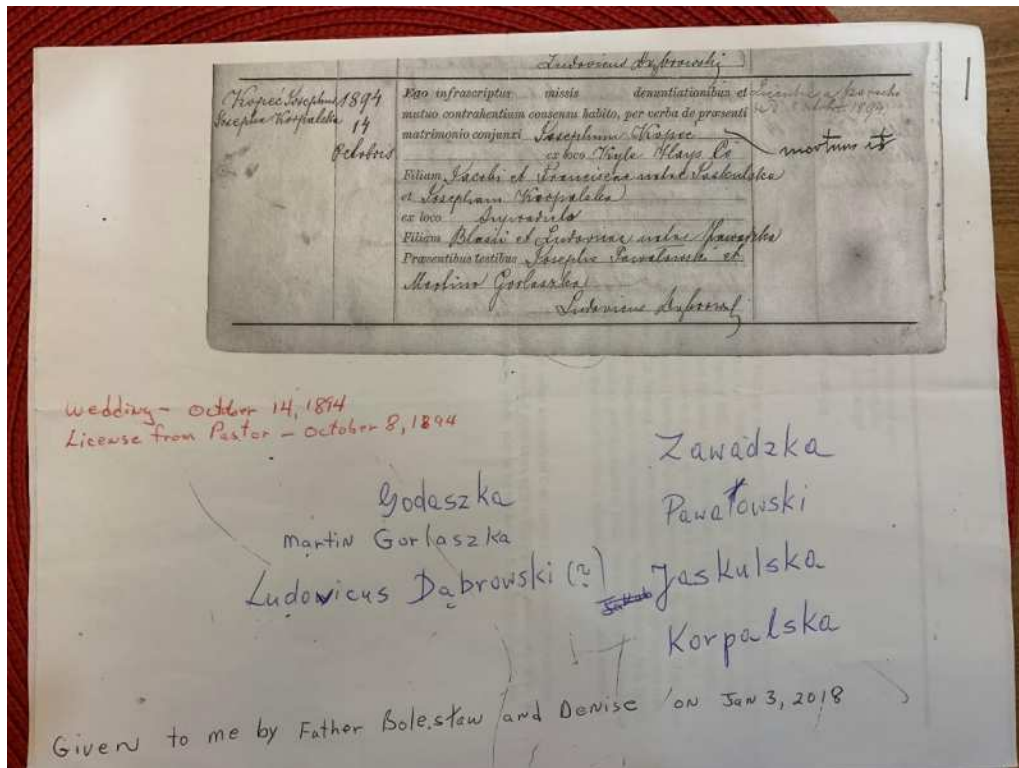 Ludovicus Dąbrowski
Kopeć Josephus 1894
Josepha Korpalska 14
Octobris
Ego infrascriptus, missis denuntiationibus et
mutuo contrahentium consensu habito, per verba de præsenti
matrimonio conjunxi Josephum Kopec
ex loco Kyle Hays Co
Filium Jacobi et Franciscae natae Jaskulska
et Josepham Korpalska
ex loco
Filiam Blasii et Ludovicae natae
Præsentibus testibus
Martino Gorlaszka
Ludovicus Dąbrowski
Licentia a parocho
1894
mortuus est
wedding - October 14, 1894
License from Pastor - October 8, 1894
Zawadzka
Godaszka
Pawałowski
Martin Gorlaszka
Ludovicus Dąbrowski (?)
Jaskulska
Korpalska
Given to me by Father Bolesław and Denise on Jan 3, 2018